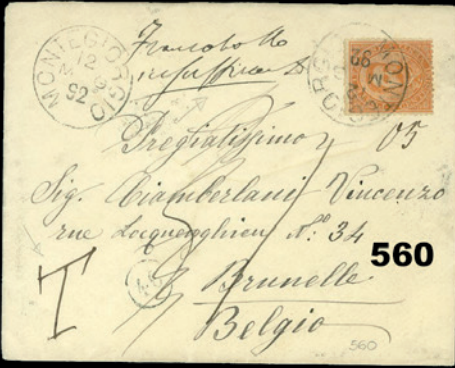 MONTEGIORGIO
12
92
Francobollo
insufficiente
92
05
Pregiatissimo
Sig. Ciamberlani Vincenzo
rue Locquenghien N.º 34
560
T
Brunelle
Belgio
560